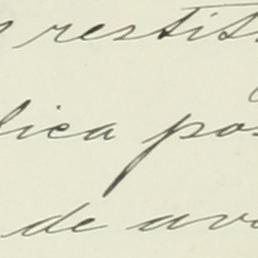 restit
lica pos
de av